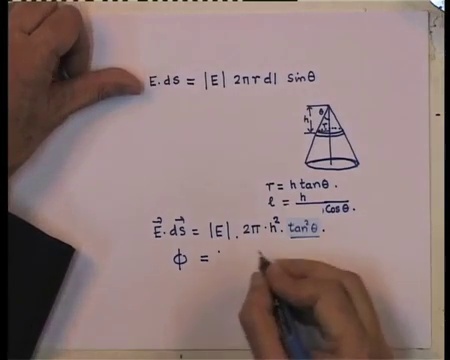 E. ds = |E| 2πrdl sinθ
θ
h
r
r = h tanθ.
l = h / cosθ.
E⃗. ds⃗ = |E|. 2π. h². tan²θ.
φ =